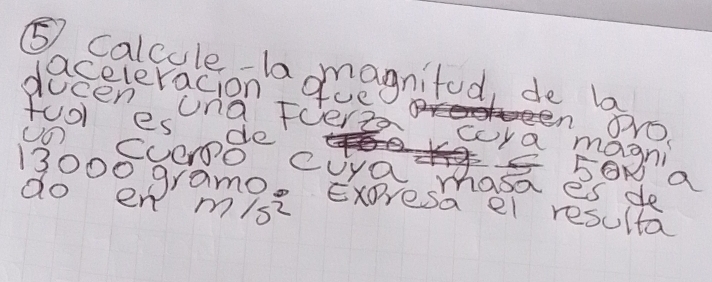 ⑤ Calcule la magnitud, de la
aceleracion que en pro.
ducen una Fuerza cuya magni
tud es de 50N a
un cuerpo cuya masa es de
13000 gramo. Expresa el resulta
do en m/s²